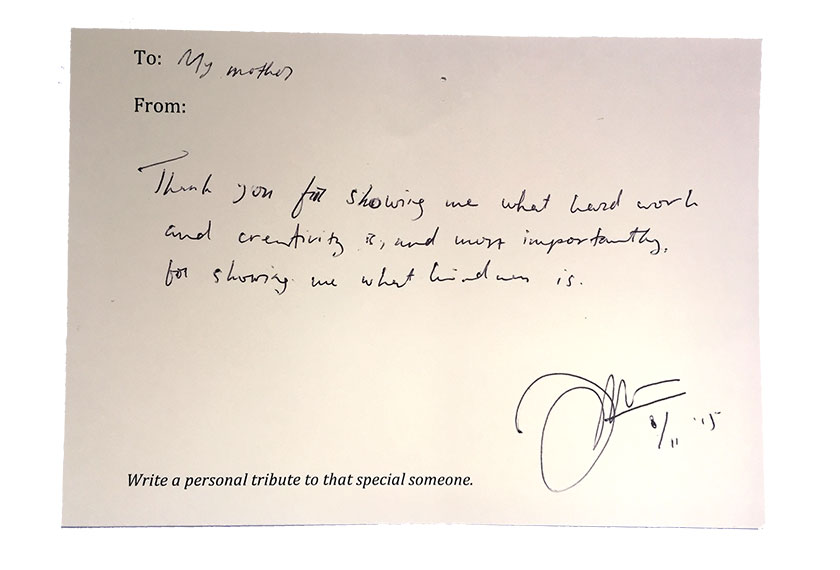 To: My mother
From:
Thank you for showing me what hard work
and creativity is, and most importantly,
for showing me what kindness is.
8/11 '15
Write a personal tribute to that special someone.